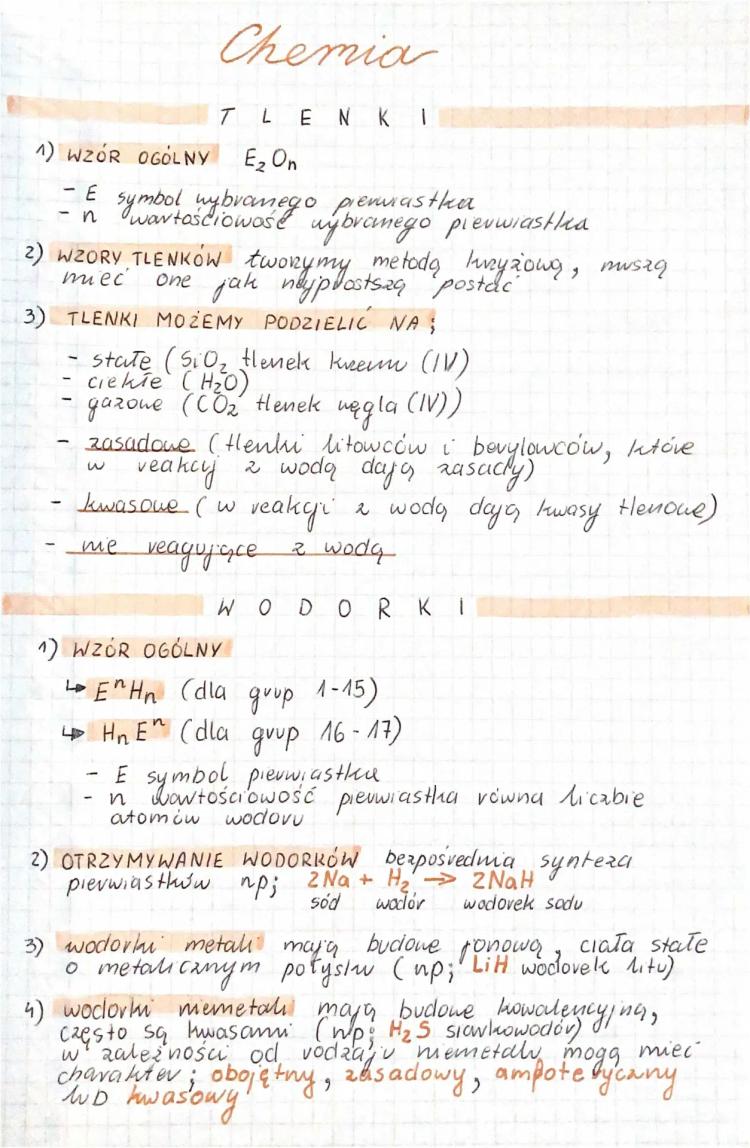 Chemia
TLENKI
1) WZÓR OGÓLNY E₂On
- E symbol wybranego pierwiastka
- n wartościowość wybranego pierwiastka
2) WZORY TLENKÓW tworzymy metodą krzyżową, muszą
mieć one jak najprostszą postać
3) TLENKI MOŻEMY PODZIELIĆ NA;
- stałe (SiO₂ tlenek krzemu (IV)
- ciekłe (H₂O)
- gazowe (CO₂ tlenek węgla (IV))
- zasadowe (tlenki litowców i berylowców, które
w reakcji z wodą dają zasady)
- kwasowe (w reakcji z wodą dają kwasy tlenowe)
- nie reagujące z wodą
WODORKI
1) WZÓR OGÓLNY
↳ EⁿHn (dla grup 1-15)
↳ HnEⁿ (dla grup 16-17)
- E symbol pierwiastka
- n wartościowość pierwiastka równa liczbie
atomów wodoru
2) OTRZYMYWANIE WODORKÓW bezpośrednia synteza
pierwiastków np; 2Na + H₂ → 2NaH
sód wodór wodorek sodu
3) wodorki metali mają budowę jonową, ciała stałe
o metalicznym połysku (np; LiH wodorek litu)
4) wodorki niemetali mają budowę kowalencyjną,
często są kwasami (np; H₂S siarkowodór)
w zależności od rodzaju niemetalu mogą mieć
charakter; obojętny, zasadowy, amfoteryczny
lub kwasowy